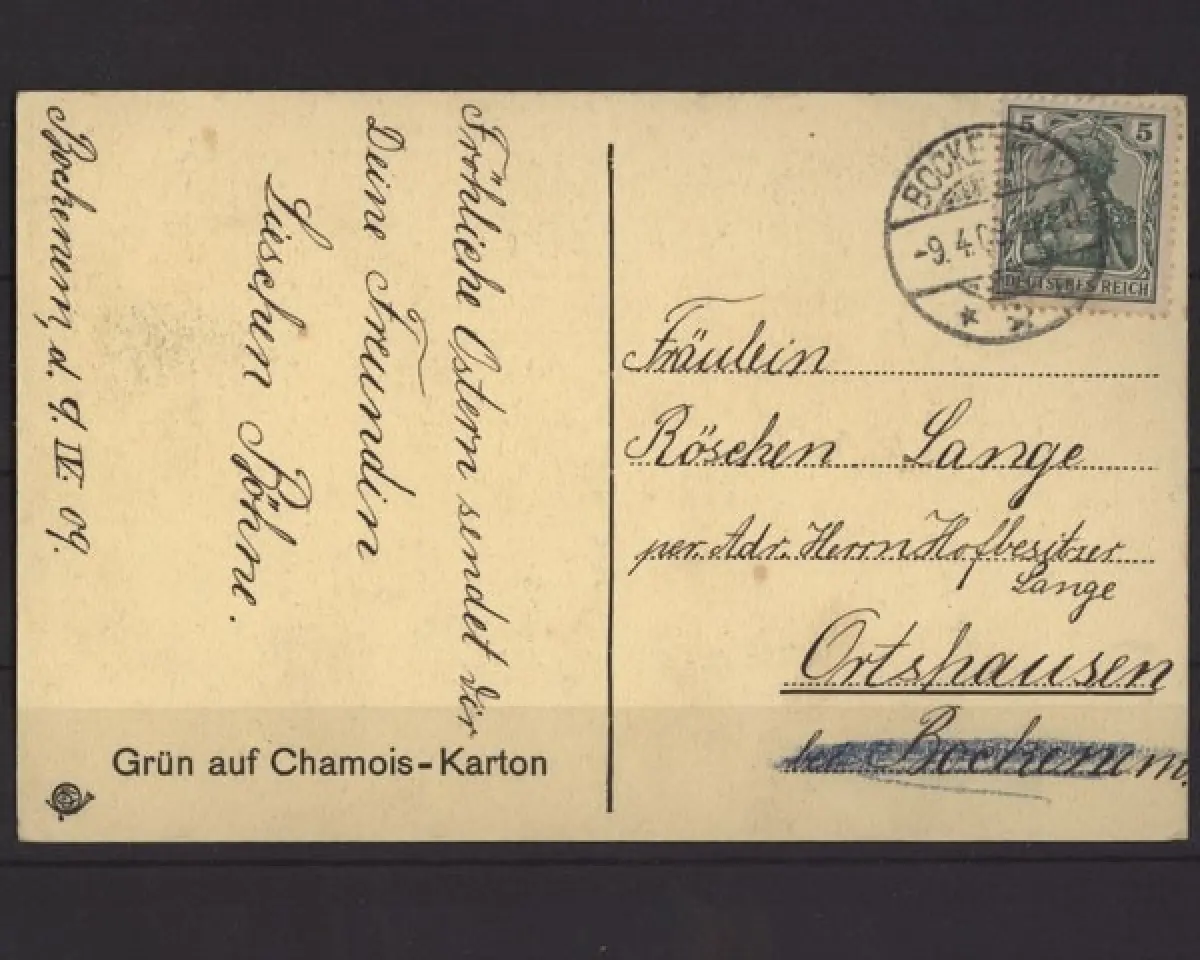 Bockenem, d. 9. IV. 09.
Fröhliche Ostern sendet dir
Deine Freundin
Lieschen Söhne.
Grün auf Chamois-Karton
5 5
DEUTSCHES REICH
-9.4.0
Fräulein
Röschen Lange
per. Adr. Herrn Hofbesitzer
Lange
Ortshausen
bei Bockenem.